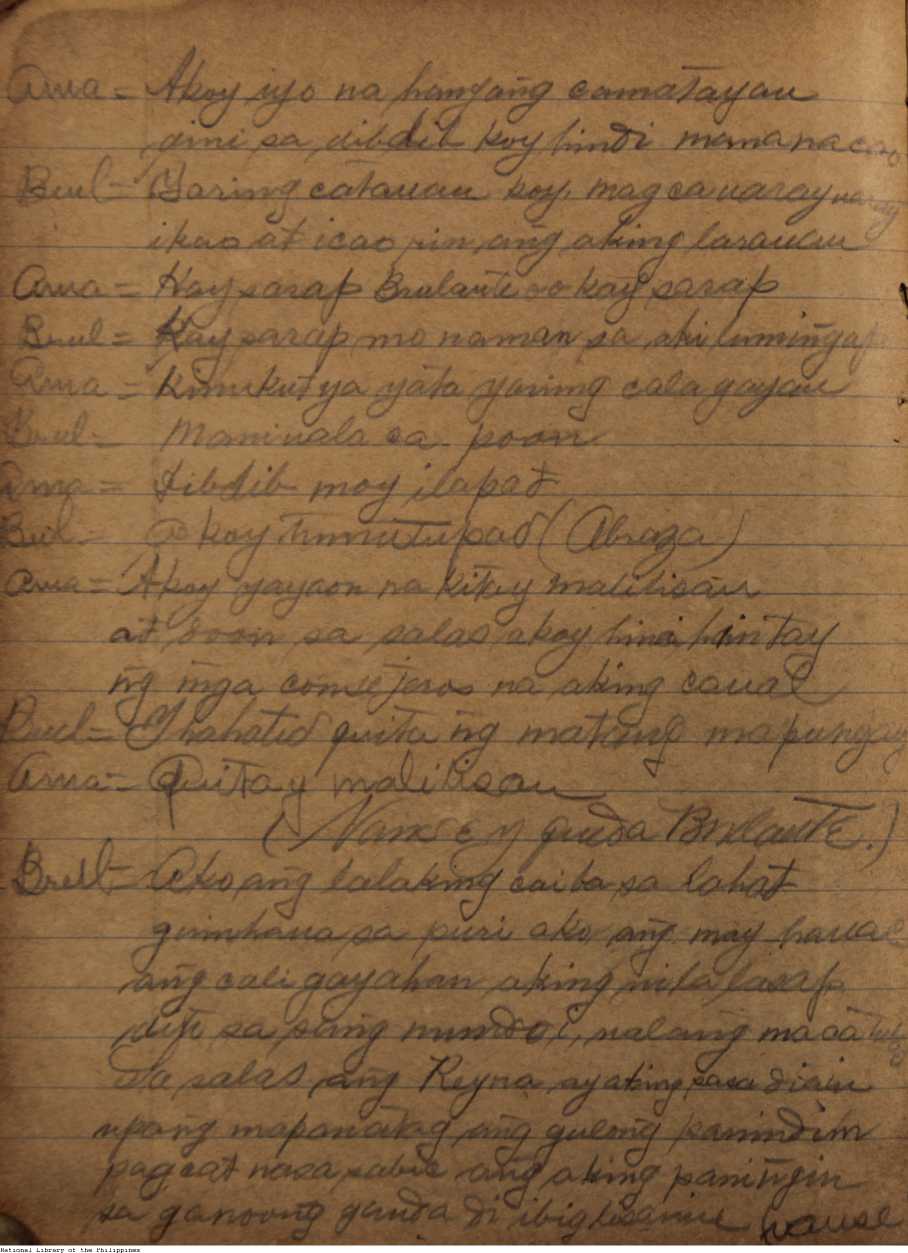 Ama = Akoy iyo na hangang camatayan
gini sa dibdib koy hindi mamanacao
Brul = Yaring catauan koy, magcauaray uaray
ikao at icao rin ang aking larauan
Ama = Kay sarap Brulante oo kay sarap
Brul = Kay sarap mo naman sa aki lumiñgap
Ama = Kinukutya yata yaring calagayan
Brul = Maniuala ca poon
Ama = Dibdib moy ilapat
Brul = Akoy tumutupad (Abraza)
Ama = Akoy yayaon na kitay malilisan
at doon sa salas akoy hinihintay
ñg mga consejeros na aking caual
Brul = Ihahatid quita ñg matang mapungay
Ama = Quitay malilisan
(Vanse y queda Brulante.)
Brul = Ako ang lalaking caiba sa lahat
guinhaua sa puri ako ang may hauac
ang caligayahan aking nilalasap
dito sa sang mundoi, ualang macatulad
Sa salas ang Reyna ay aking sasadiain
upang mapanatag ang gulong panindim
pagcat nasasabic ang aking paniñgin
sa ganoong ganda di ibig lisanin (vause
National Library of the Philippines